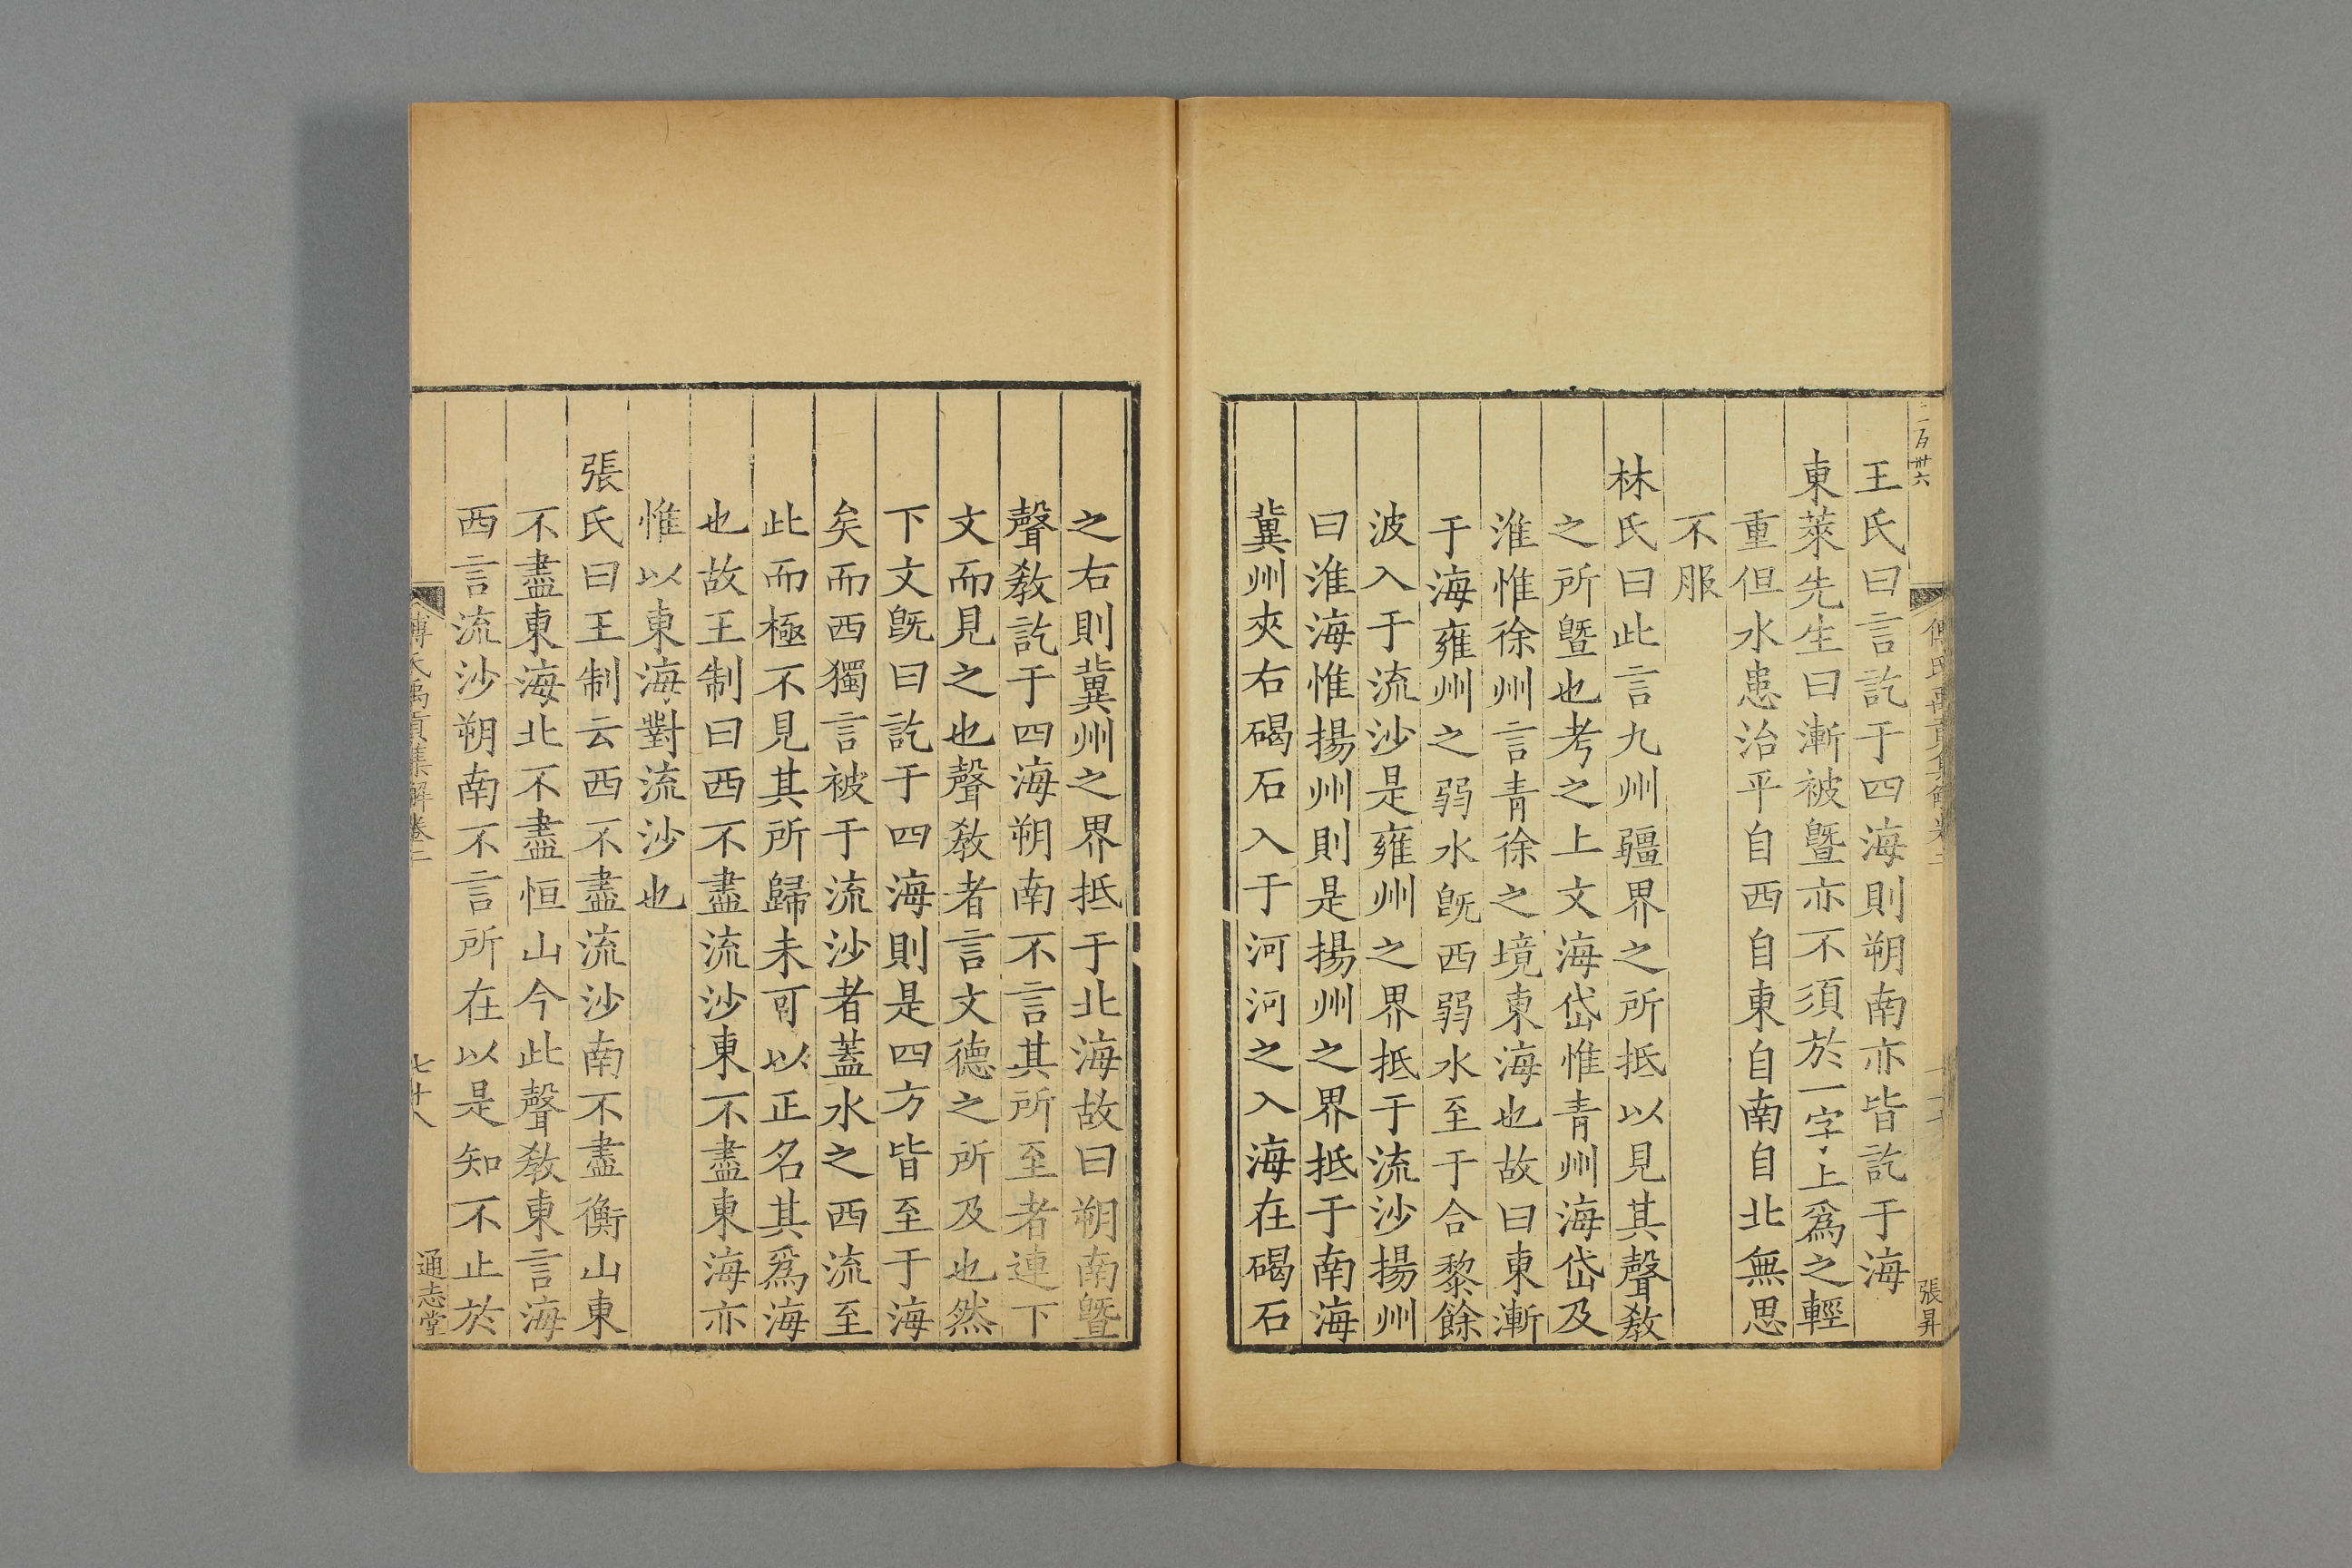 王氏曰言訖于四海則朔南亦皆訖于海
東萊先生曰漸被曁亦不須於一字上爲之輕
重但水患治平自西自東自南自北無思
不服
林氏曰此言九州疆界之所抵以見其聲敎
之所曁也考之上文海岱惟青州海岱及
淮惟徐州言青徐之境東海也故曰東漸
于海雍州之弱水旣西弱水至于合黎餘
波入于流沙是雍州之界抵于流沙揚州
曰淮海惟揚州則是揚州之界抵于南海
冀州夾右碣石入于河河之入海在碣石
張昇
之右則冀州之界抵于北海故曰朔南曁
聲敎訖于四海朔南不言其所至者連下
文而見之也聲敎者言文德之所及也然
下文旣曰訖于四海則是四方皆至于海
矣而西獨言被于流沙者蓋水之西流至
此而極不見其所歸未可以正名其爲海
也故王制曰西不盡流沙東不盡東海亦
惟以東海對流沙也
張氏曰王制云西不盡流沙南不盡衡山東
不盡東海北不盡恒山今此聲敎東言海
西言流沙朔南不言所在以是知不止於
傅氏禹貢集解卷二
通志堂